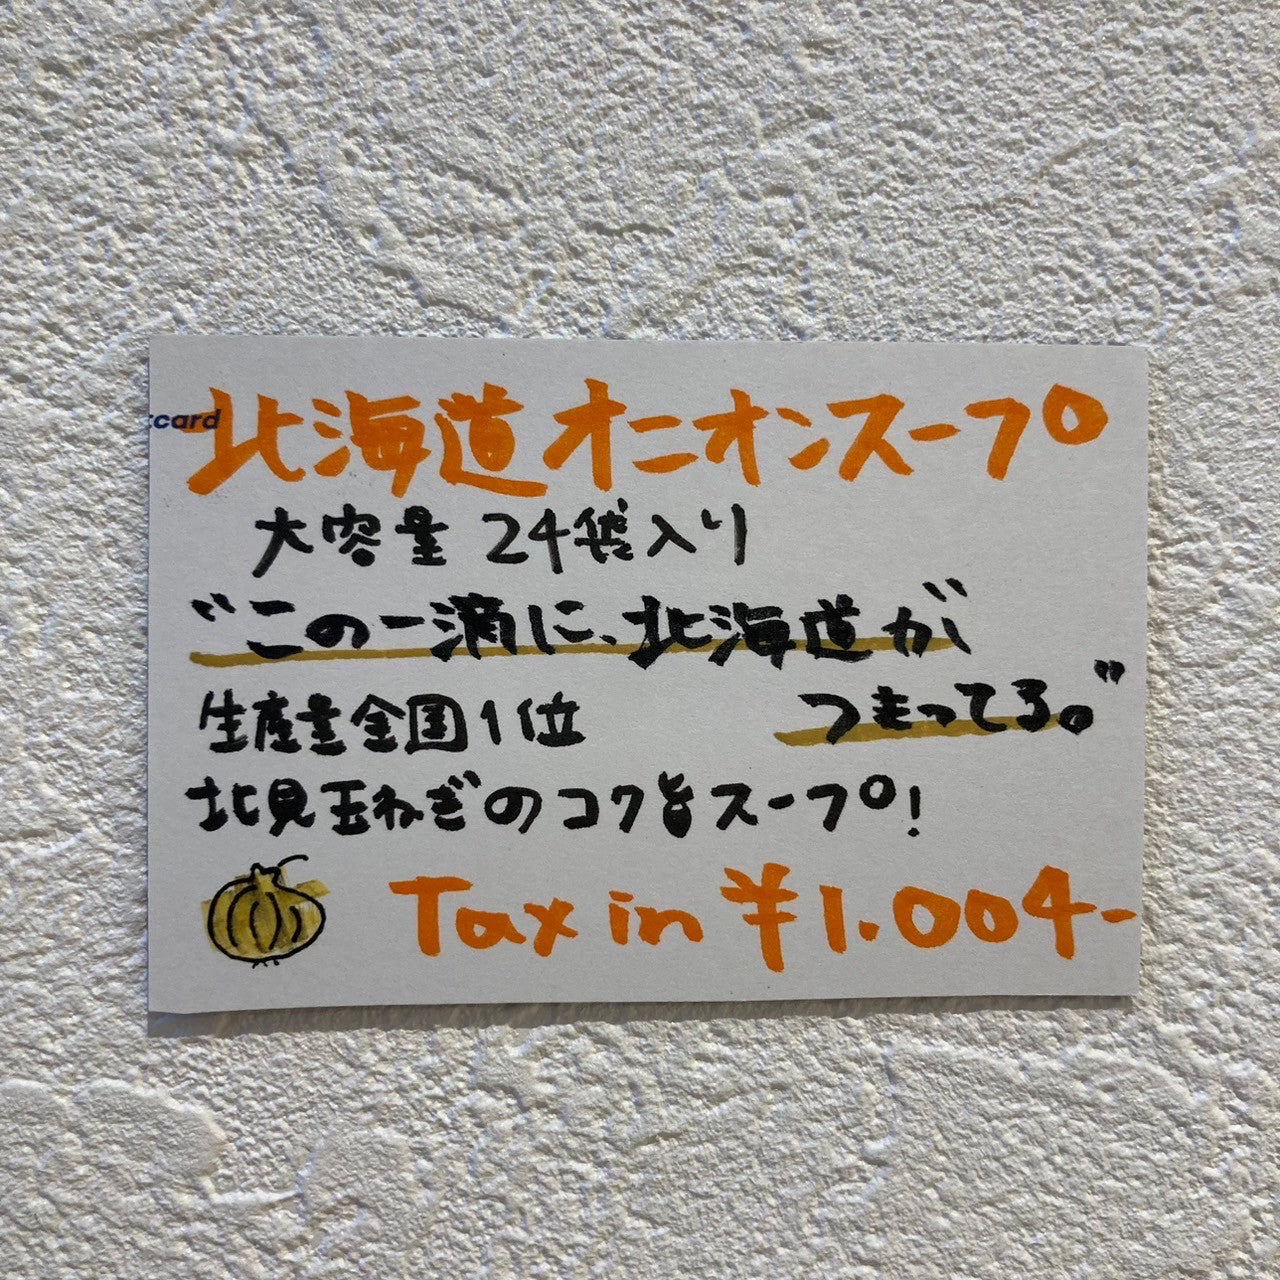 tcard
北海道オニオンスープ
大容量 24袋入り
“この一滴に、北海道が
つまってる。”
生産量全国1位
北見玉ねぎのコク旨スープ!
Tax in ¥1.004-